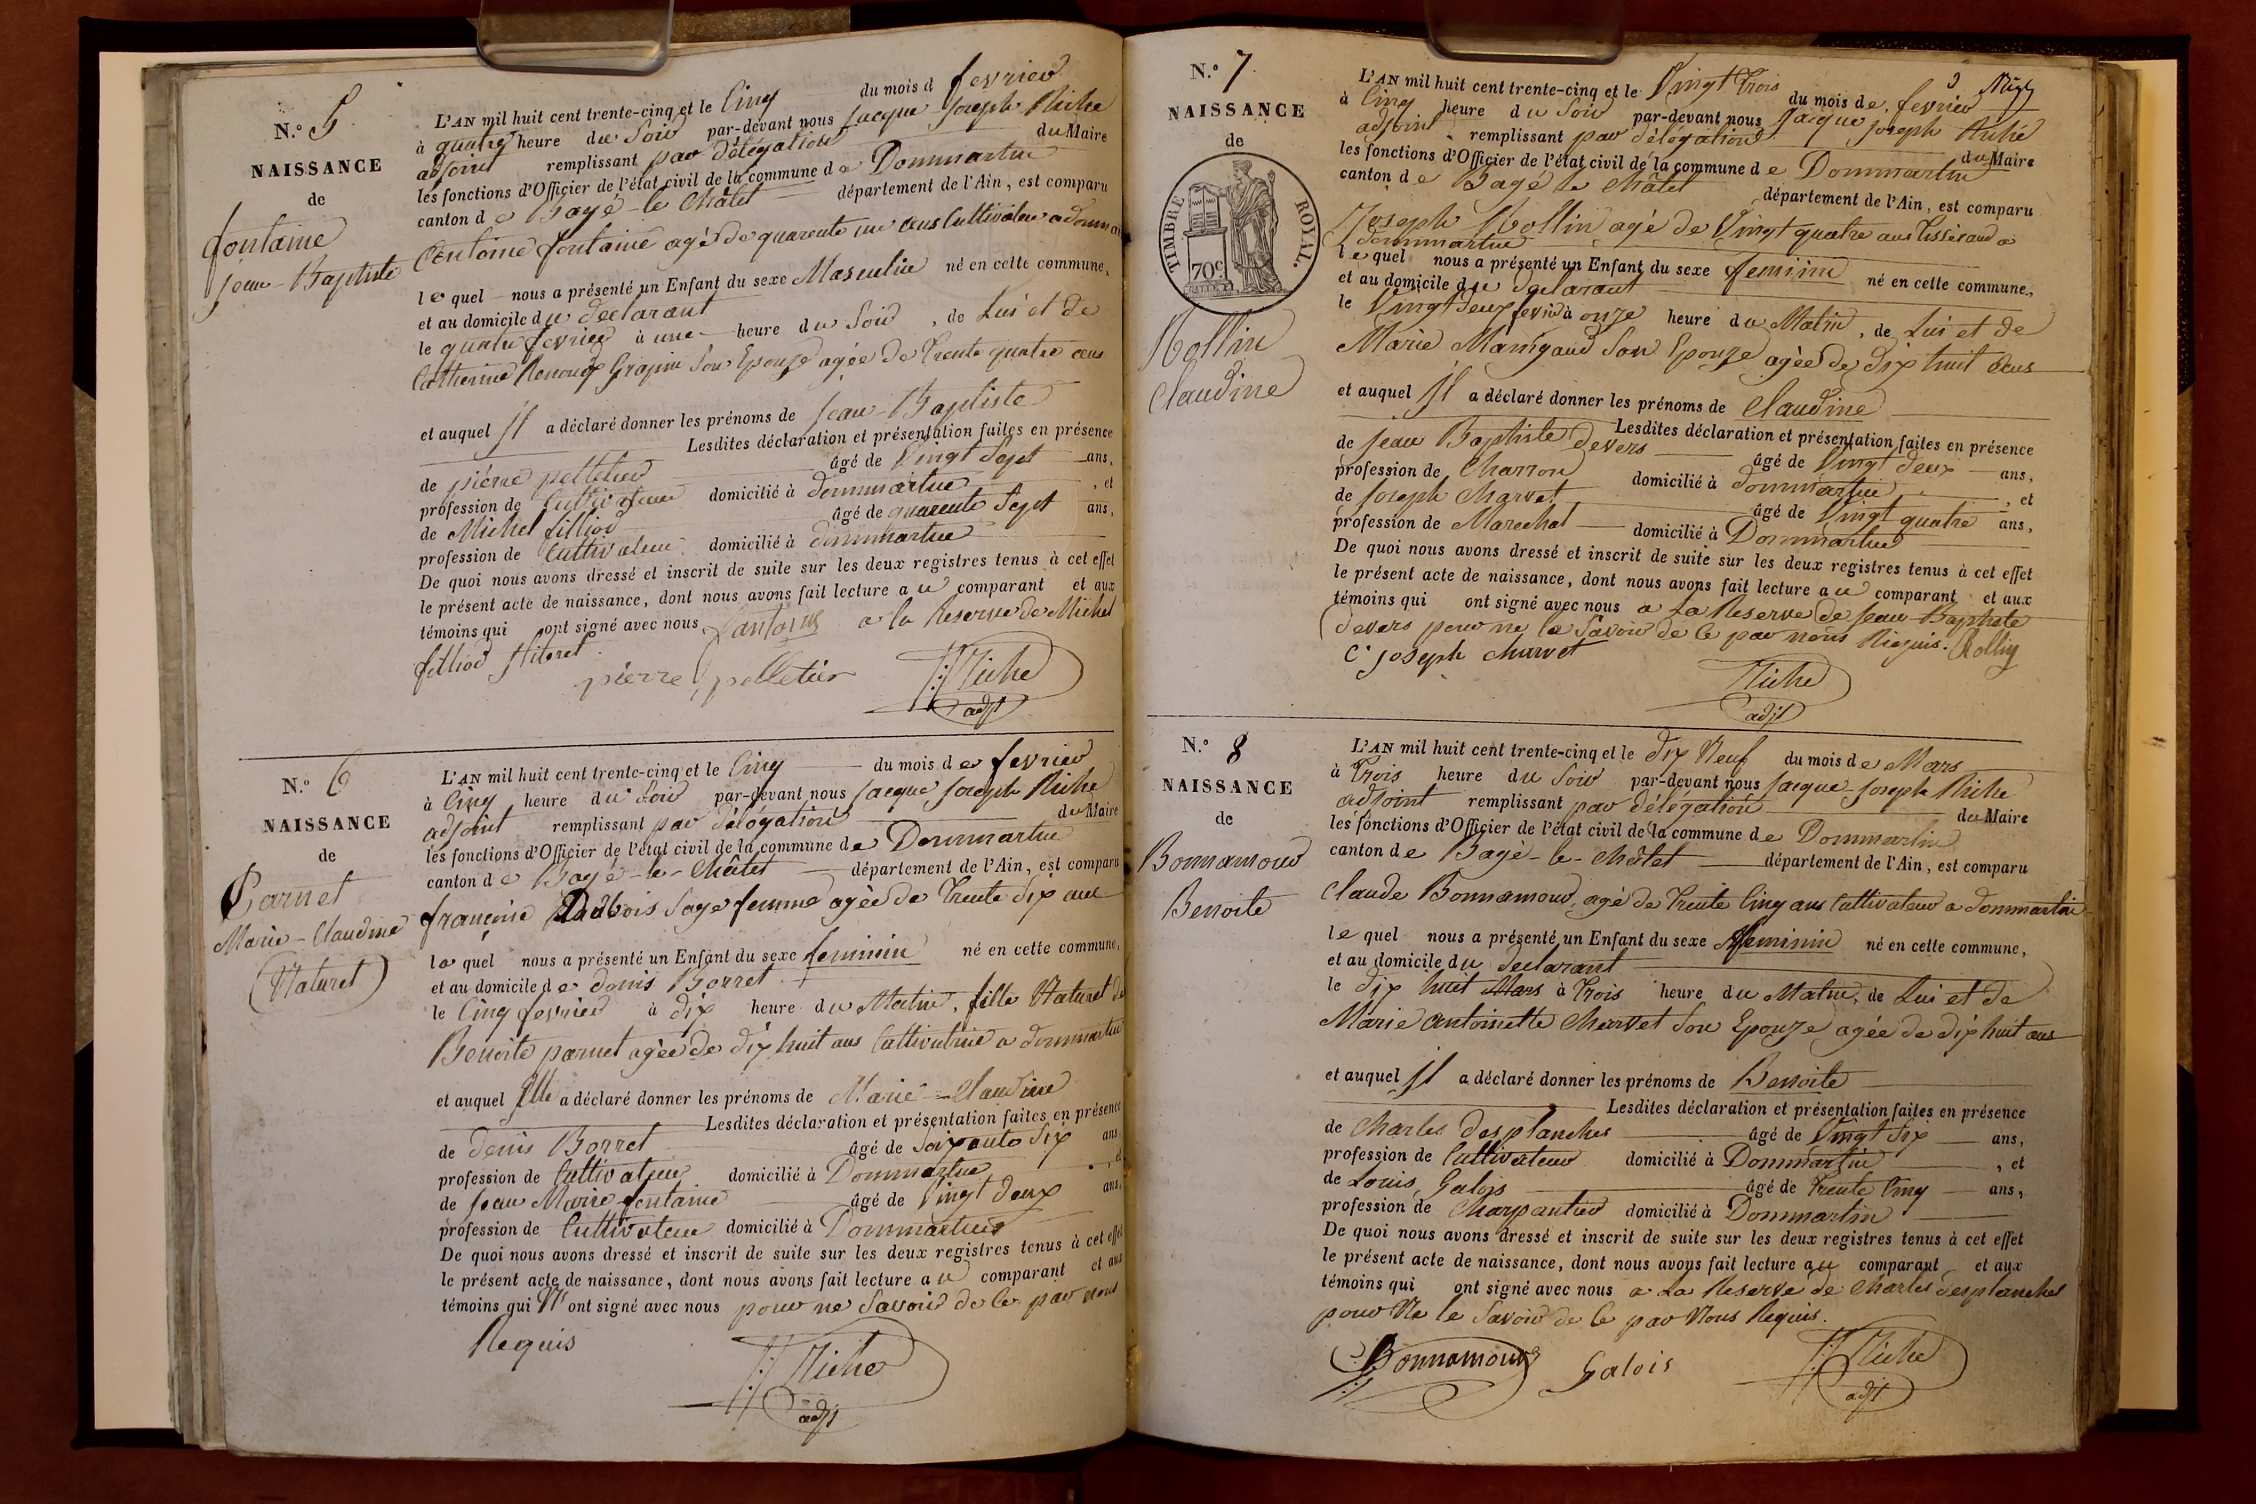 N.o 5
NAISSANCE
de
fontaine
jean-Baptiste
L'AN mil huit cent trente-cinq et le Cinq du mois d fevrier
à quatre heure du Soir par-devant nous Jacque Joseph Riche
adjoint remplissant par délégation du Maire
les fonctions d'Officier de l'état civil de la commune de Dommartin
canton de Bagé-le Châtel département de l'Ain, est comparu
Antoine fontaine agé de quarente un ans Cultivateur a
lequel nous a présenté un Enfant du sexe Masculin né en cette commune,
et au domicile du declarant
le quatre fevrier à une heure du Soir, de Lui et de
Catherine Grapin Son Epouze agée de Trente quatre ans
et auquel Il a déclaré donner les prénoms de Jean-Baptiste
Lesdites déclaration et présentation faites en présence
de piérre pelletier âgé de Vingt Sept ans,
profession de Cultivateur domicilié à dommartin, et
de Michel filliod âgé de quarente Sept ans,
profession de Cultivateur domicilié à dommartin
De quoi nous avons dressé et inscrit de suite sur les deux registres tenus à cet effet
le présent acte de naissance, dont nous avons fait lecture au comparant et aux
témoins qui ont signé avec nous a la Reserve de Michel
filliod
pierre pelletier Riche
adjt
N.o 6
NAISSANCE
de
Parnet
Marie-Claudine
(Naturel)
L'AN mil huit cent trente-cinq et le Cinq du mois de fevrier
à Cinq heure du Soir par-devant nous Jacque Joseph Riche
adjoint remplissant par délégation du Maire
les fonctions d'Officier de l'état civil de la commune de Dommartin
canton de Bagé-le-Châtel département de l'Ain, est comparu
françoise Dubois Sage femme agée de Trente Six ans
laquel nous a présenté un Enfant du sexe feminin né en cette commune,
et au domicile de donis Borret
le Cinq fevrier à dix heure du Matin, fille Naturel de
Benoite parnet agée de dix huit ans Cultivatrice a dommartin
et auquel Elle a déclaré donner les prénoms de Marie-Claudine
Lesdites déclaration et présentation faites en présence
de denis Borret âgé de Soixante Six ans,
profession de Cultivateur domicilié à Dommartin, et
de Jean Marie fontaine âgé de Vingt deux ans,
profession de Cultivateur domicilié à Dommartin
De quoi nous avons dressé et inscrit de suite sur les deux registres tenus à cet effet
le présent acte de naissance, dont nous avons fait lecture au comparant et aux
témoins qui N' ont signé avec nous pour ne Savoir de Ce par nous
Requis
Riche
adjt
N.o 7
NAISSANCE
de
TIMBRE ROYAL.
70c
Rollin
Claudine
L'AN mil huit cent trente-cinq et le Vingt Trois du mois de fevrier
à Cinq heure du Soir par-devant nous Jacque Joseph Riche
adjoint remplissant par délégation du Maire
les fonctions d'Officier de l'état civil de la commune de Dommartin
canton de Bagé le Châtel département de l'Ain, est comparu
Joseph Rollin agé de Vingt quatre ans Tisserand a
dommartin
lequel nous a présenté un Enfant du sexe feminin né en cette commune,
et au domicile du declarant
le Vingt deux fevrier à onze heure du Matin, de Lui et de
Marie Manigaud Son Epouze agée de dix huit ans
et auquel Il a déclaré donner les prénoms de Claudine
Lesdites déclaration et présentation faites en présence
de Jean Baptiste devers âgé de Vingt deux ans,
profession de Charron domicilié à dommartin, et
de Joseph Charvet âgé de Vingt quatre ans,
profession de Marechal domicilié à Dommartin
De quoi nous avons dressé et inscrit de suite sur les deux registres tenus à cet effet
le présent acte de naissance, dont nous avons fait lecture au comparant et aux
témoins qui ont signé avec nous a La Reserve de Jean-Baptiste
devers pour ne le Savoir de Ce par nous Requis. Rollin
C. joseph charvet
Riche
adjt
N.o 8
NAISSANCE
de
Bonnamour
Benoite
L'AN mil huit cent trente-cinq et le dix Neuf du mois de Mars
à Trois heure du Soir par-devant nous Jacque Joseph Riche
adjoint remplissant par délégation du Maire
les fonctions d'Officier de l'état civil de la commune de Dommartin
canton de Bagé-le-Châtel département de l'Ain, est comparu
Claude Bonnamour, agé de Trente Cinq ans Cultivateur a dommartin
lequel nous a présenté un Enfant du sexe feminin né en cette commune,
et au domicile du declarant
le dix huit Mars à Trois heure du Matin, de Lui et de
Marie antoinette Charvet Son Epouze, agée de dix huit ans
et auquel Il a déclaré donner les prénoms de Benoite
Lesdites déclaration et présentation faites en présence
de Charles desplanches âgé de Vingt Six ans,
profession de Cultivateur domicilié à Dommartin, et
de Louis Galois âgé de Trente Cinq ans,
profession de Charpantier domicilié à Dommartin
De quoi nous avons dressé et inscrit de suite sur les deux registres tenus à cet effet
le présent acte de naissance, dont nous avons fait lecture au comparant et aux
témoins qui ont signé avec nous a La Reserve de Charles desplanches
pour Ne le Savoir de Ce par Nous Requis.
Bonnamour Galois Riche
adjt